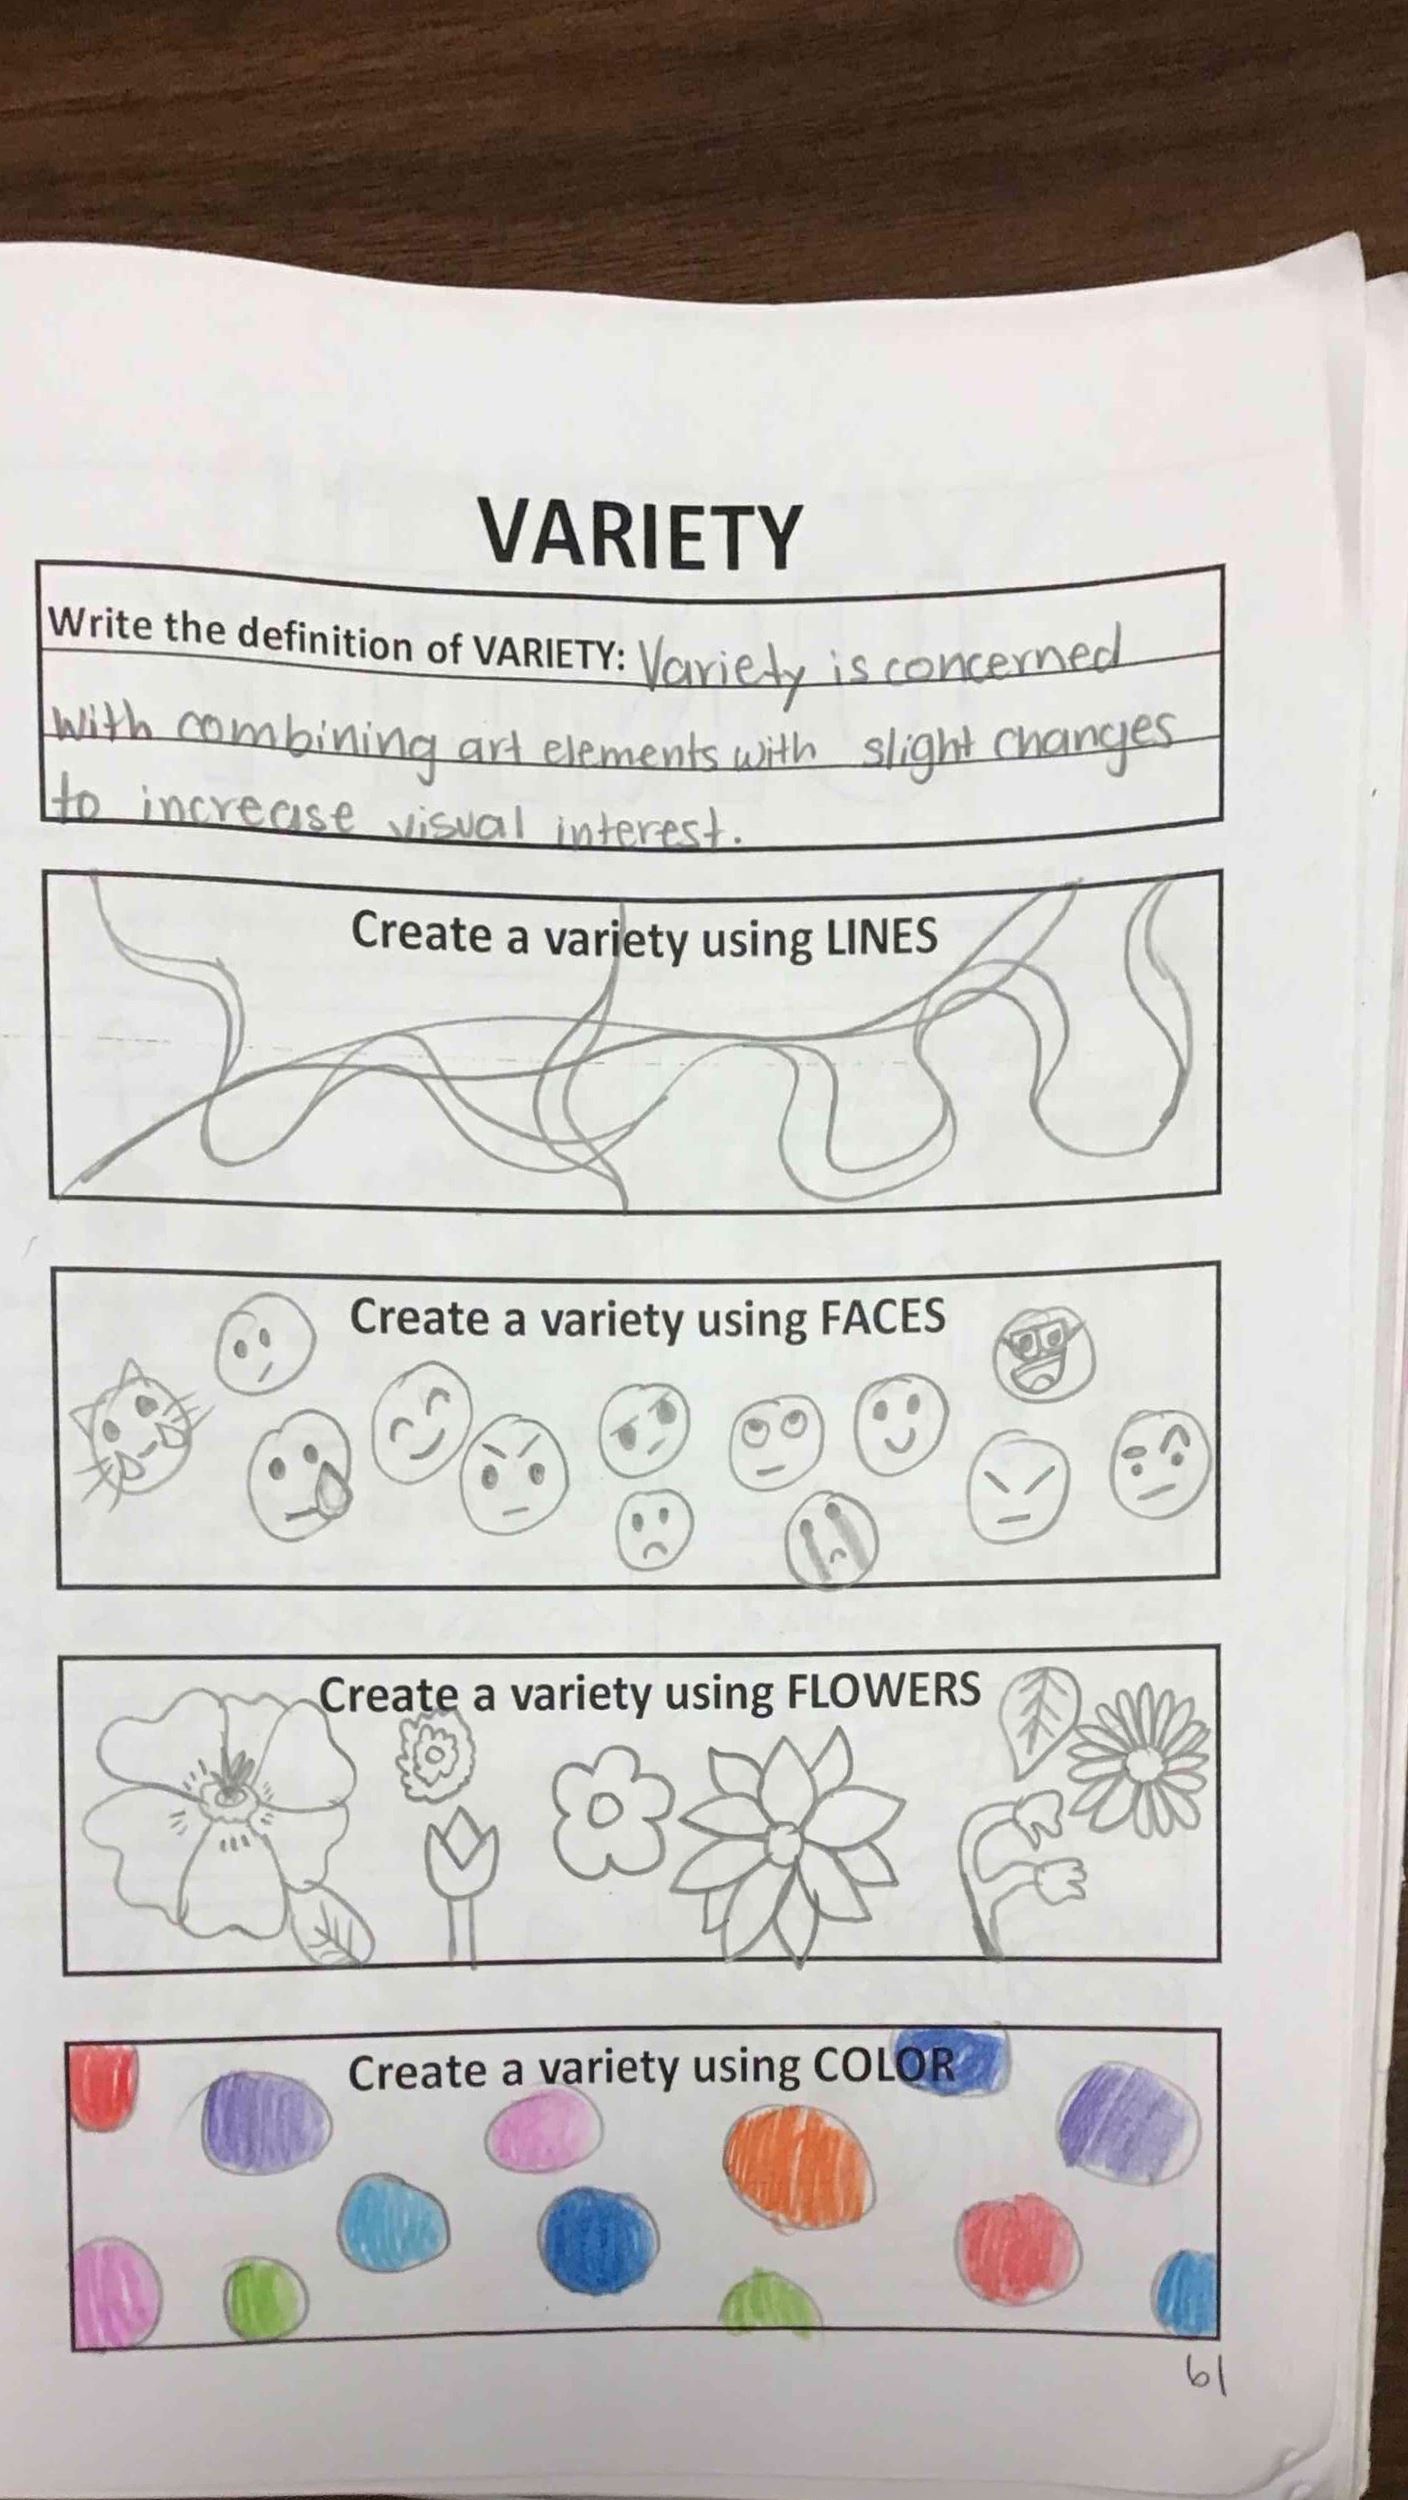 VARIETY
Write the definition of VARIETY: Variety is concerned
with combining art elements with slight changes
to increase visual interest.
Create a variety using LINES
Create a variety using FACES
Create a variety using FLOWERS
Create a variety using COLOR
61